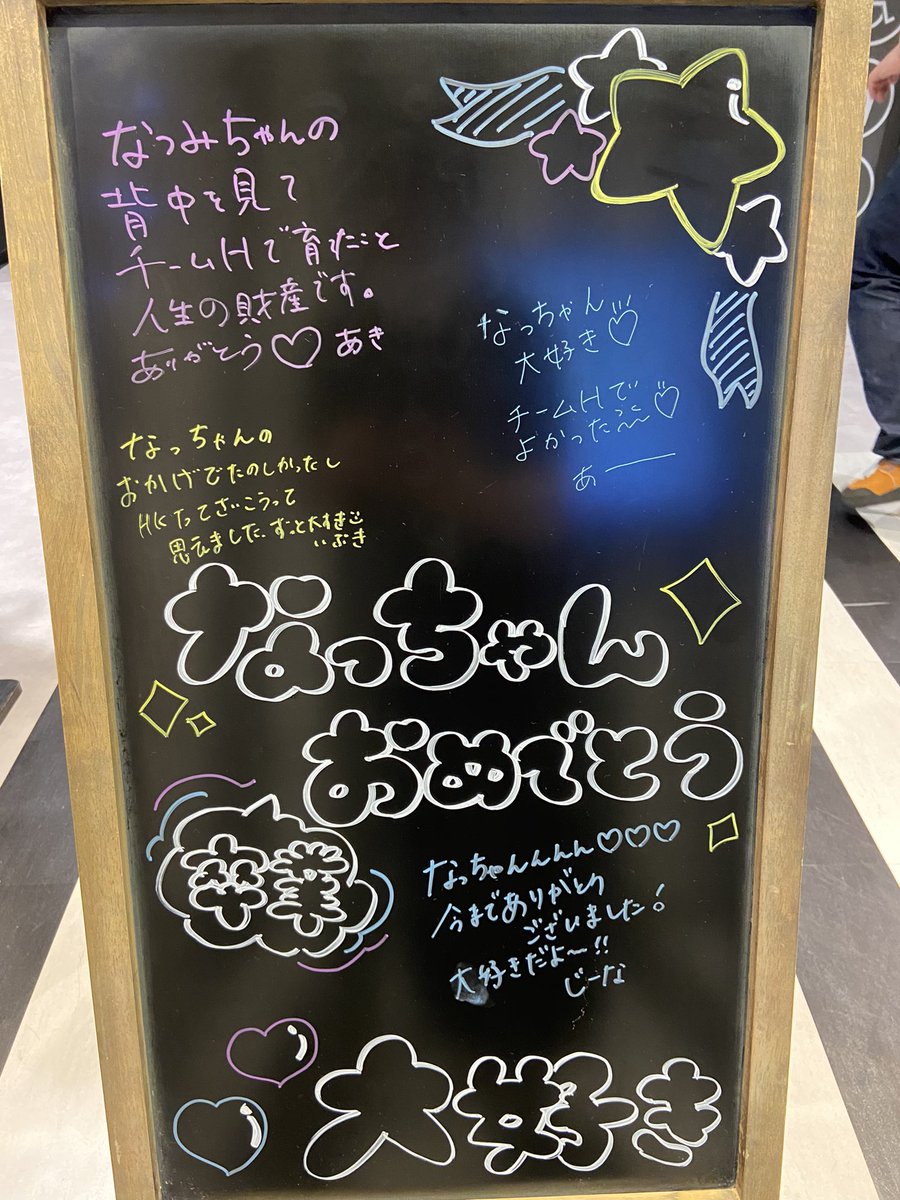 なつみちゃんの
背中を見て
チームHで育ったこと
人生の財産です。
ありがとう♡あき
なっちゃん
大好き♡
チームHで
よかったぁ〜♡
あー
なっちゃんの
おかげでたのしかったし
HKTってさいこうって
思えました。ずっと大すき
いぶき
なっちゃん
おめでとう
卒業
なっちゃんんんん♡♡♡
今までありがとう
ございました!
大好きだよ〜!!
じーな
大好き